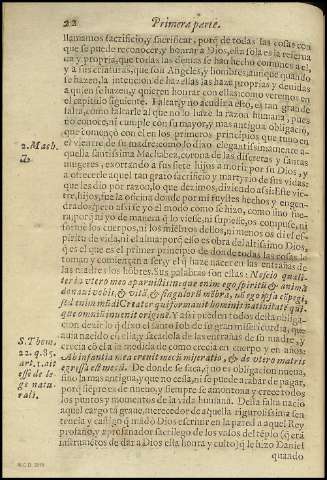 22 Primera parte.
llamamos sacrificio, y sacrificar, porq̃ de todas las cosas con
que se puede reconocer, y honrar a Dios, esta sola es la reserua
da y propria, que todas las demas se han hecho comunes a el,
y a sus criaturas, que son Angeles, y hombres, aunque quando
se hazen, la intencion de hazellas las haze proprias y deuidas
a quien se hazen, y quieren honrar con ellas: como veremos en
el capitulo siguiente. Faltar, y no acudir a esto, es tan grande
falta, como faltarle al que no lo haze la razon humana, pues
no conoce, ni cumple con su mayor, y mas antigua obligació,
que començó con el en los primeros principios que tuuo en
el vientre de su madre: como lo dixo elegantissimamente a
2. Mach. quella santissima Machabea, corona de las discretas y santas
7. mugeres, exortando a sus siete hijos a morir por su Dios, y
a ofrecerle aquel tan grato sacrificio y martyrio de sus vidas:
que les dio por razon, lo que dezimos, diziendo assi: Este vie-
tre, hijos, fue la oficina donde por mi fuystes hechos y engen-
drados: pero assi se yo el modo como se hizo, como sino fue-
ra, porq̃ ni yo de manera q̃ lo viesse, ni supiesse, os compuse, ni
forme los cuerpos, ni los miẽbros dellos, ni menos os di el es-
piritu de vida, ni el alma: porq̃ ello es obra del altissimo Dios,
q̃ es el que es el primer principio de donde todas las cosas lo
toman y comiençan a ser, y el q̃ haze nacer en las entrañas de
las madres los hõbres. Sus palabras son estas: Nescio quali-
ter in vtero meo aparuistis: neque enim ego spiritũ & animã
donaui vobis, & vitã, & singulorũ mẽbra, nõ ego ipsa cõpegi,
sed enim mũdi Creator qui formauit hominis natiuitatẽ qui-
que omniũ inuenit originẽ. Y assi pueden todos desta obliga-
cion dezir lo q̃ dixo el santo Iob de su gran misericordia, que
S. Thom. auia nacido cõ ella, y sacadola de las entrañas de su madre, y
22. q. 85. crecia cõ el a la medida de como crecia en cuerpo y en años:
art. 1. ait Ab infantia mea creuit mecũ miseratio, & de vtero matris
esse de le egressa est mecũ. De donde se saca, q̃ no es obligacion nueua,
ge natu- ni la ay mas antigua, y que no cessa, ni se puede acabar de pagar,
rali. porq̃ siẽpre es de nueuo, y siempre se amontona y crece todos
los puntos y momentos de la vida humana. Desta falta nacio
aquel cargo tã graue, merecedor de aquella rigurosissima sen-
tencia y castigo q̃ mãdò Dios escreuir en la pared a aquel Rey
profano, y aprofanador sacrilego de los vasos del tẽplo (q̃ erã
instrumẽtos de dar a Dios esta honra y culto) q̃ le hizo Daniel
quando